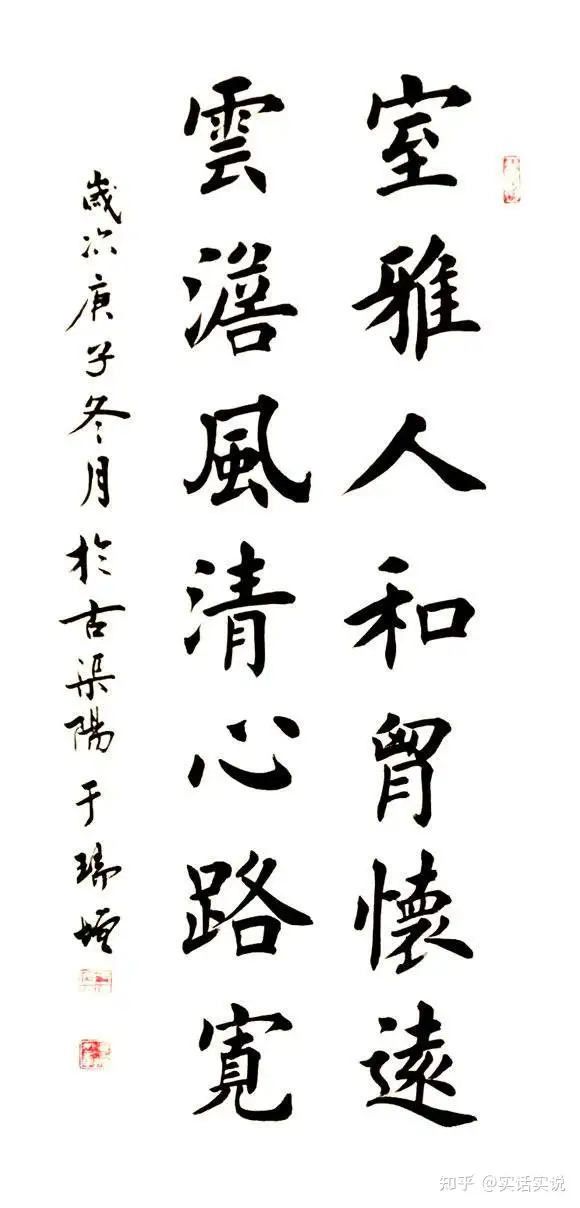 室雅人和胷懷遠
雲澹風清心路寬
歲次庚子冬月於古渠陽于瑞
知乎 @实话实说